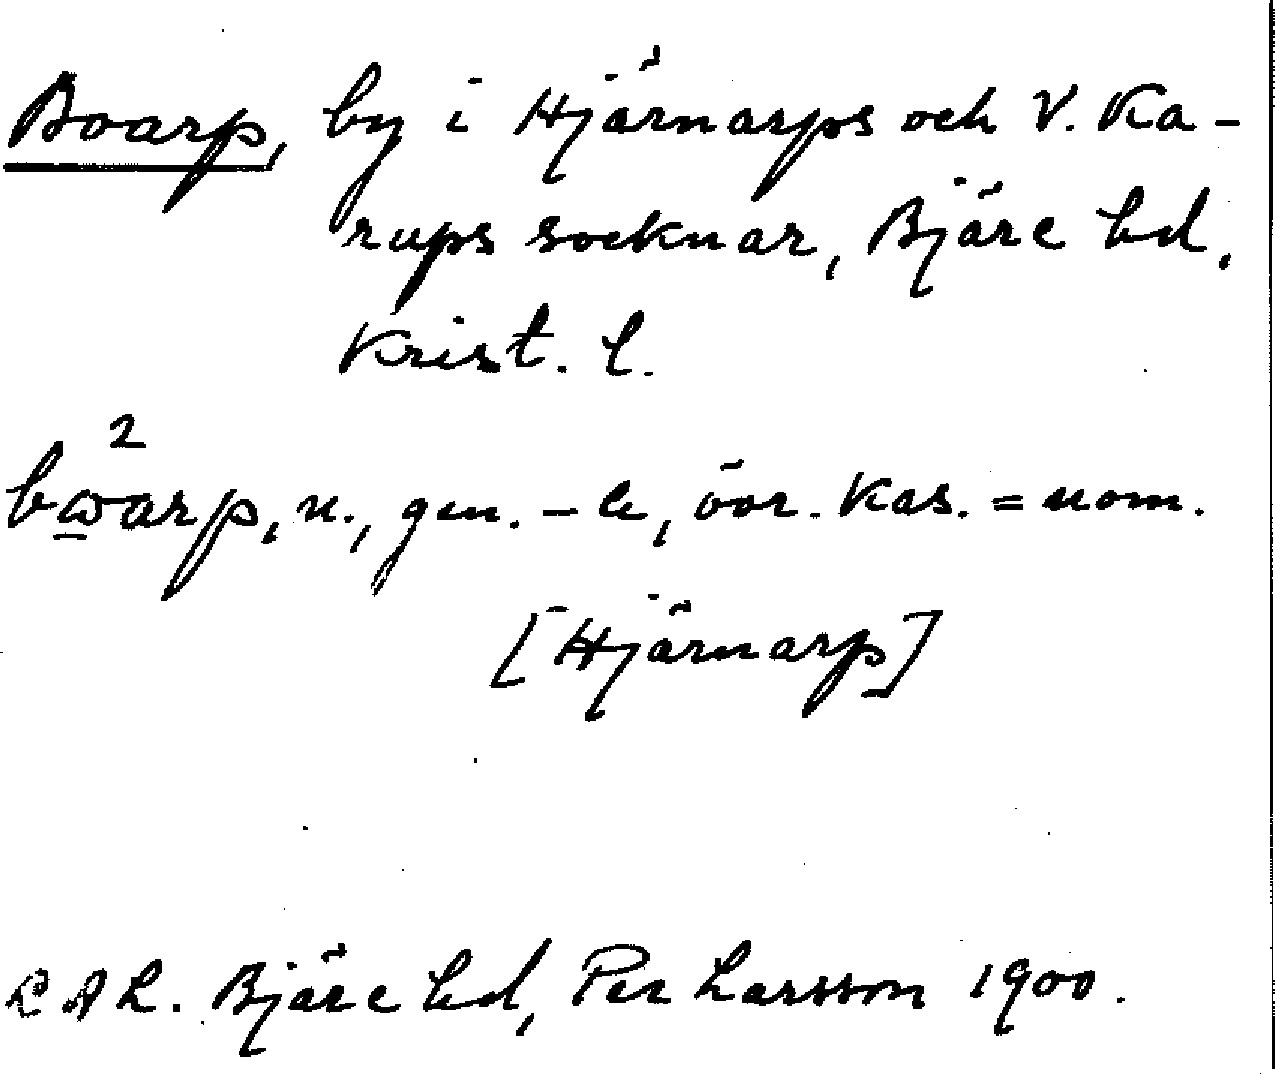 Boarp, by i Hjärnarps och V. Ka-
rups socknar, Bjäre hd,
Krist. l.
2
bωarp, n., gen. -
, övr. kas. = nom.
[Hjärnarp]
LAL. Bjäre hd, Per Larsson 1900.